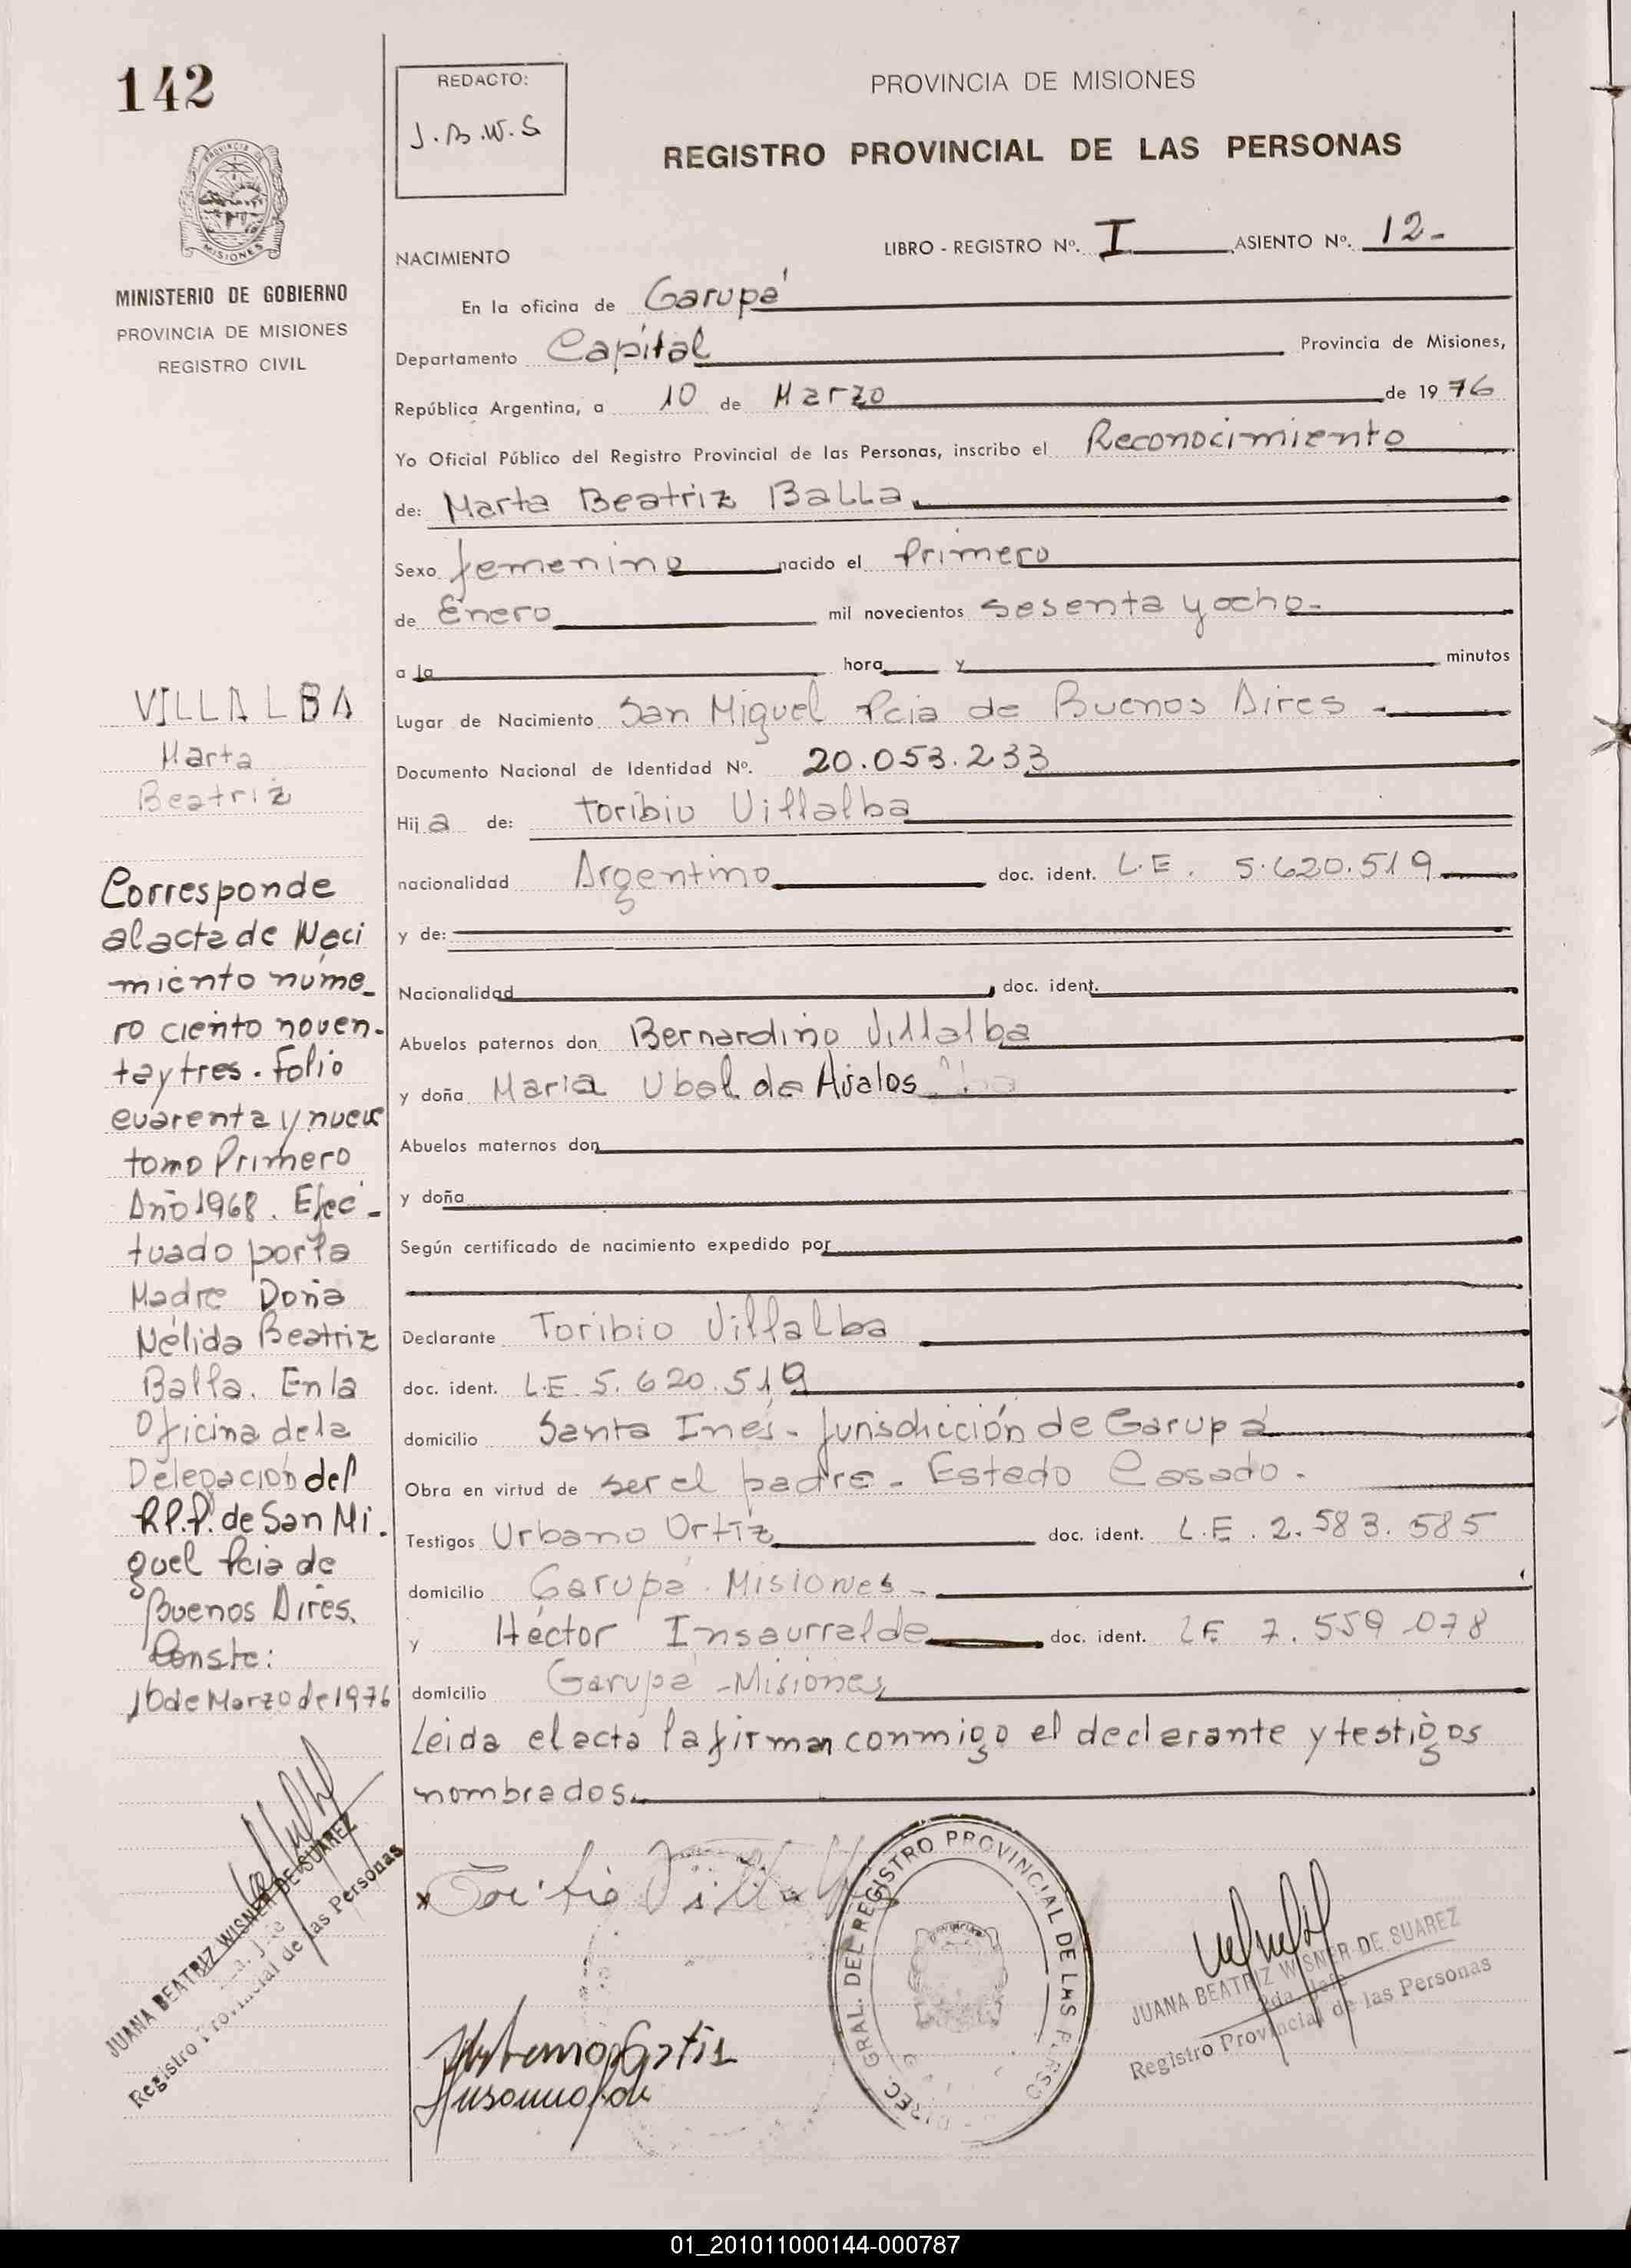 142
REDACTO:
J.B.W.S
PROVINCIA DE MISIONES
REGISTRO PROVINCIAL DE LAS PERSONAS
PROVINCIA DE
MISIONES
MINISTERIO DE GOBIERNO
PROVINCIA DE MISIONES
REGISTRO CIVIL
LIBRO - REGISTRO Nº. I ASIENTO Nº. 12-
NACIMIENTO
En la oficina de Garupá
Departamento Capital Provincia de Misiones,
República Argentina, a 10 de Marzo de 1976
Yo Oficial Público del Registro Provincial de las Personas, inscribo el Reconocimiento
de: Marta Beatriz Balla.
Sexo femenino nacido el Primero
de Enero mil novecientos sesenta y ocho-
a la hora y minutos
Lugar de Nacimiento San Miguel Pcia de Buenos Aires -
Documento Nacional de Identidad Nº. 20.053.233
Hija de: Toribio Villalba
nacionalidad Argentino doc. ident. L.E. 5.620.519
y de:
Nacionalidad doc. ident.
Abuelos paternos don Bernardino Villalba
y doña Maria Ubalda Avalos
Abuelos maternos don
y doña
Según certificado de nacimiento expedido por
Declarante Toribio Villalba
doc. ident. L.E. 5.620.519
domicilio Santa Inés- Jurisdicción de Garupá
Obra en virtud de ser el padre - Estado Casado.
Testigos Urbano Ortiz doc. ident. L.E. 2.583.585
domicilio Garupá. Misiones -
y Héctor Insaurralde doc. ident. LE 7.559.078
domicilio Garupá - Misiones
Leida el acta la firman conmigo el declarante y testigos
nombrados.
VILLALBA
Marta
Beatriz
Corresponde
al acta de Naci
miento núme_
ro ciento noven-
ta y tres. Folio
cuarenta y nueve
tomo Primero
Año 1968. Efec-
tuado por la
Madre Doña
Nélida Beatriz
Balla. En la
Oficina de la
Delegación del
R.P.P. de San Mi.
guel Pcia de
Buenos Aires.
Conste:
10 de Marzo de 1976
JUANA BEATRIZ WISNER DE SUAREZ
Registro Provincial de las Personas
Toribio Villalba
Urbano Ortiz
DIREC. GRAL. DEL REGISTRO PROVINCIAL DE LAS PERSO
JUANA BEATRIZ WISNER DE SUAREZ
2da. Jefe
Registro Provincial de las Personas
01_201011000144-000787